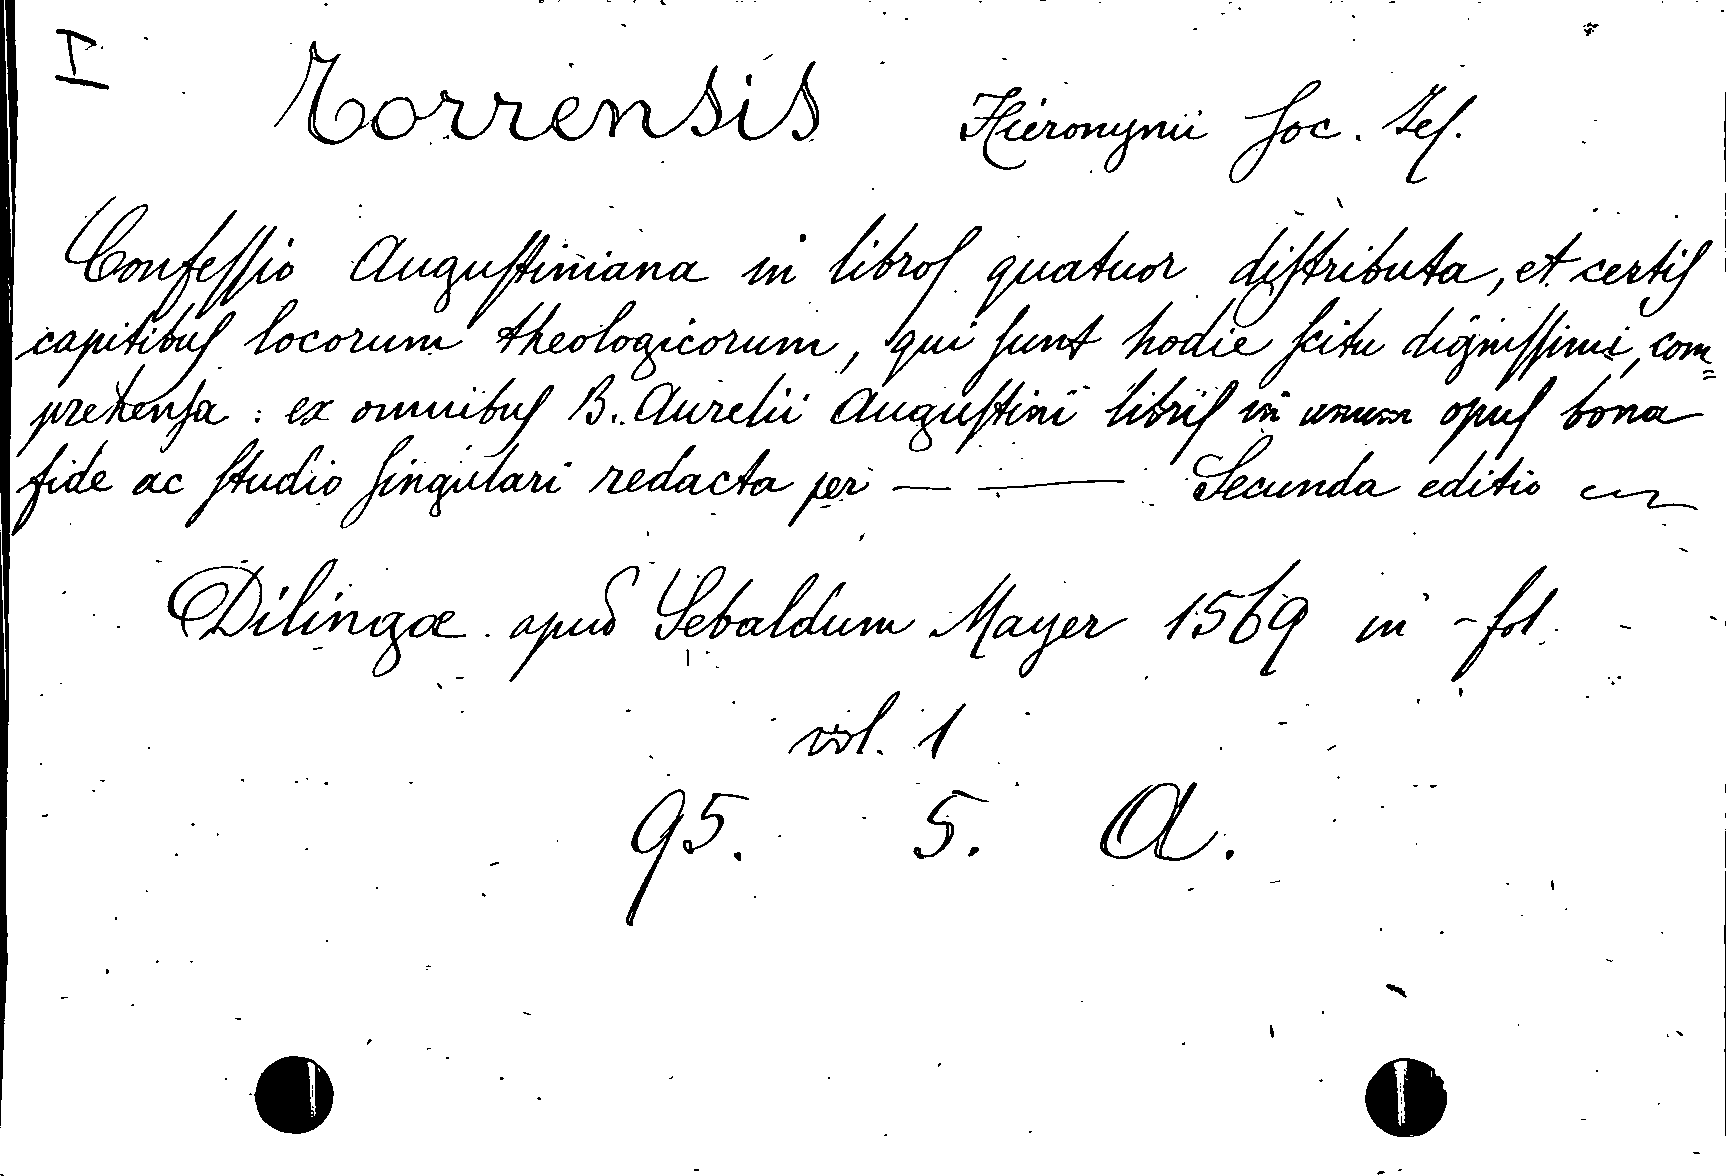 I
Torrensis Hieronymi Soc. Jes.
Confessio Augustiniana in libros quatuor distributa, et certis
capitibus locorum theologicorum, qui sunt hodie scitu dignissimi, com=
prehensa : ex omnibus B. Aurelii Augustini libris in unum opus bona
fide ac studio singulari redacta per — — Secunda editio
Dilingæ apud Sebaldum Mayer 1569 in-fol.
vol. 1
95. 5. A.